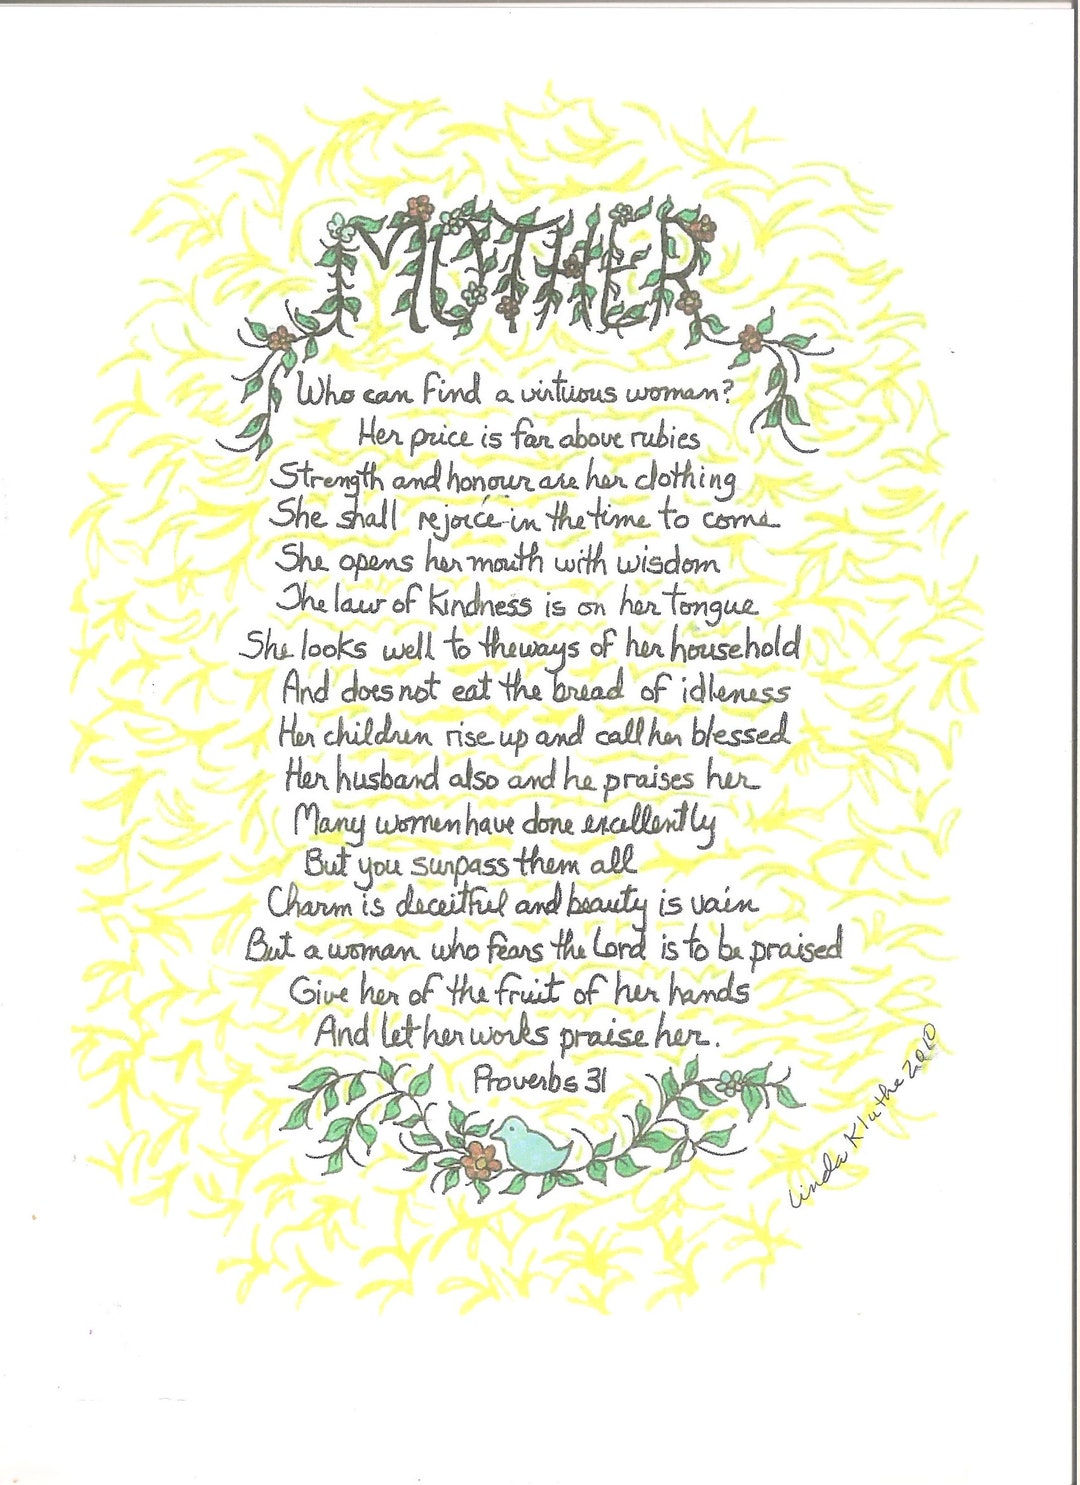 MOTHER
Who can find a virtuous woman?
Her price is far above rubies
Strength and honour are her clothing
She shall rejoice in the time to come
She opens her mouth with wisdom
The law of kindness is on her tongue
She looks well to the ways of her household
And does not eat the bread of idleness
Her children rise up and call her blessed
Her husband also and he praises her
Many women have done excellently
But you surpass them all
Charm is deceitful and beauty is vain
But a woman who fears the Lord is to be praised
Give her of the fruit of her hands
And let her works praise her.
Proverbs 31
Linda Kluthe 2010